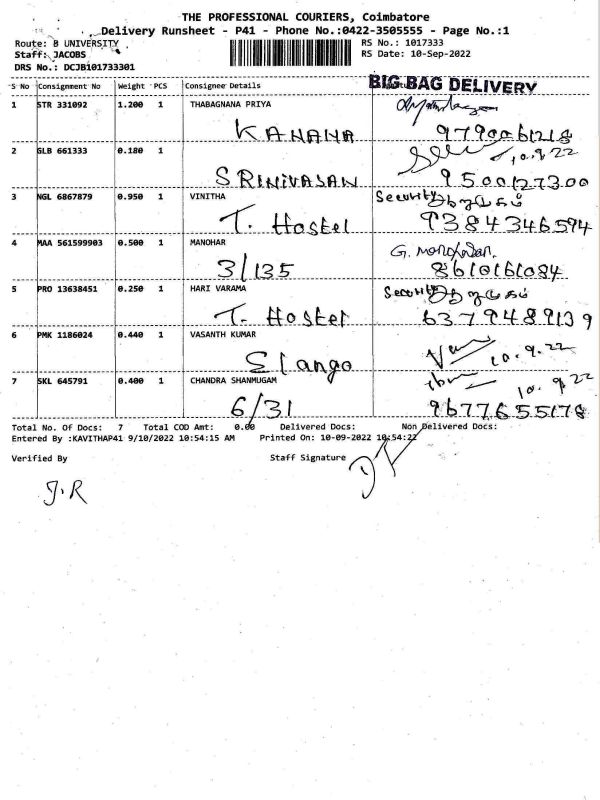 THE PROFESSIONAL COURIERS, Coimbatore
Delivery Runsheet - P41 - Phone No.:0422-3505555 - Page No.:1
Route: 8 UNIVERSITY
RS No.: 1017333
Staff: JACOBS
RS Date: 10-Sep-2022
DRS No.: DCJB101733301
BIG BAG DELIVERY
S No Consignment No Weight PCS Consignee Details
1 STR 331092 1.200 1 THABAGNANA PRIYA
KANANA 9790061218
2 GLB 661333 0.180 1 10.9.22
SRINIVASAN 9500127300
3 NGL 6867879 0.950 1 VINITHA Security ஆறுமுகம்
T. Hostel 9384346594
4 MAA 561599903 0.500 1 MANOHAR G. Manohar.
3/135 8610161084
5 PRO 13638451 0.250 1 HARI VARAMA Security ஆறுமுகம்
T. Hostel 6379489139
6 PMK 1186024 0.440 1 VASANTH KUMAR 10.9.22
Elango
7 SKL 645791 0.400 1 CHANDRA SHANMUGAM 10.9.22
6/31 9677655178
Total No. Of Docs: 7 Total COD Amt: 0.00 Delivered Docs: Non Delivered Docs:
Entered By :KAVITHAP41 9/10/2022 10:54:15 AM Printed On: 10-09-2022 10:54:22
Verified By Staff Signature
J.R